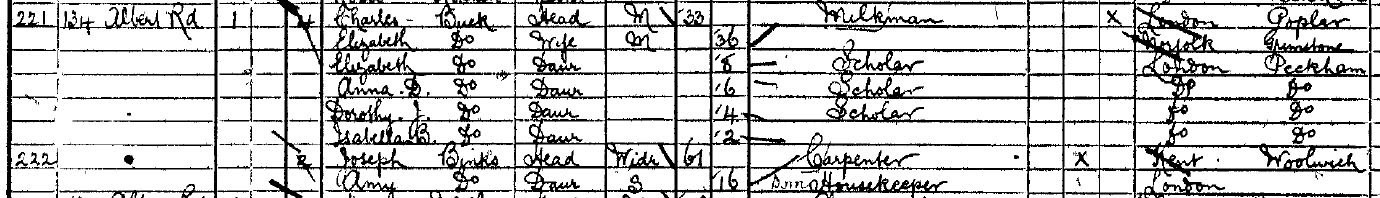 221 134 Albert Rd 1 4 Charles Buck Head M 33 Milkman X London Poplar
Elizabeth Do Wife M 36 Norfolk Grimstone
Elizabeth Do Daur 8 Scholar London Peckham
Anna D. Do Daur 6 Scholar Do Do
Dorothy J. Do Daur 4 Scholar Do Do
Isabella B. Do Daur 2 Do Do
222 2 Joseph Binks Head Widr 61 Carpenter X Kent Woolwich
Amy Do Daur S 16 Housekeeper London